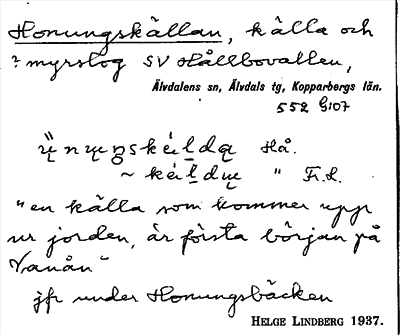 Honungskällan, källa och
? myrslog SV Hållbovallen,
Älvdalens sn, Älvdals tg, Kopparbergs län.
552 G107
Hå.
~ " F.L.
"en källa som kommer upp
ur jorden, är första början på
Vanån"
jfr under Honungsbäcken
HELGE LINDBERG 1937.